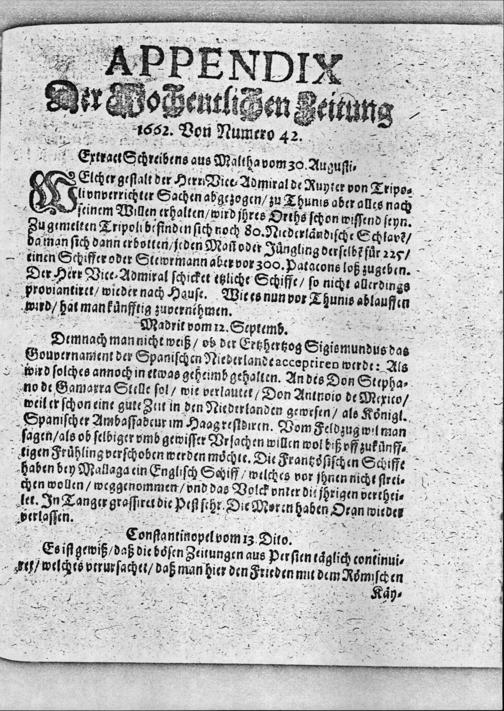 APPENDIX
Der Wochentlichen Zeitung
1662. Von Numero 42.
Extract Schreibens aus Maltha vom 30. Augusti.
WElcher gestalt der Herr Vice-Admiral de Ruyter von Tripo-
li onverrichter Sachen abgezogen/ zu Thunis aber alles nach
seinem Willen erhalten/ wird jhres Orths schon wissend seyn.
Zu gemelten Tripoli befinden sich noch 80. Niederländische Schlavē/
da man sich dann erbotten/ jeden Mañ oder Jüngling derselbē für 225/
einen Schiffer oder Stewrmann aber vor 300. Patacons loß zugeben.
Der Herr Vice-Admiral schicket etzliche Schiffe/ so nicht allerdings
proviantiret/ wieder nach Hause. Wie es nun vor Thunis ablauffen
wird/ hat man künfftig zuvernehmen.
Madrit vom 12. Septemb.
Demnach man nicht weiß/ ob der Ertzhertzog Sigismundus das
Gouvernament der Spanischen Niederlande accepriren werde: Als
wird solches annoch in etwas geheimb gehalten. An des Don Stepha-
no de Gamarra Stelle sol/ wie verlautet/ Don Antnoio de Mexico/
weil er schon eine gute Zeit in den Niederlanden gewesen/ als Königl.
Spanischer Ambassadeur im Haag residiren. Vom Feldzug wil man
sagen/ als ob selbiger vmb gewisser Vrsachen willen wol biß vff zukünff-
tigen Frühling verschoben werden möchte. Die Frantzösischen Schiffe
haben bey Mallaga ein Englisch Schiff/ welches vor jhnen nicht strei-
chen wollen/ weggenommen/ vnd das Volck vnter die jhrigen verthei-
let. In Tanger grassiret die Pest sehr. Die Moren haben Oran wieder
verlassen.
Constantinopel vom 13. Dito.
Es ist gewiß/ daß die bösen Zeitungen aus Persien täglich continui-
ren/ welches verursachet/ daß man hier den Frieden mit dem Römischen
Käy-